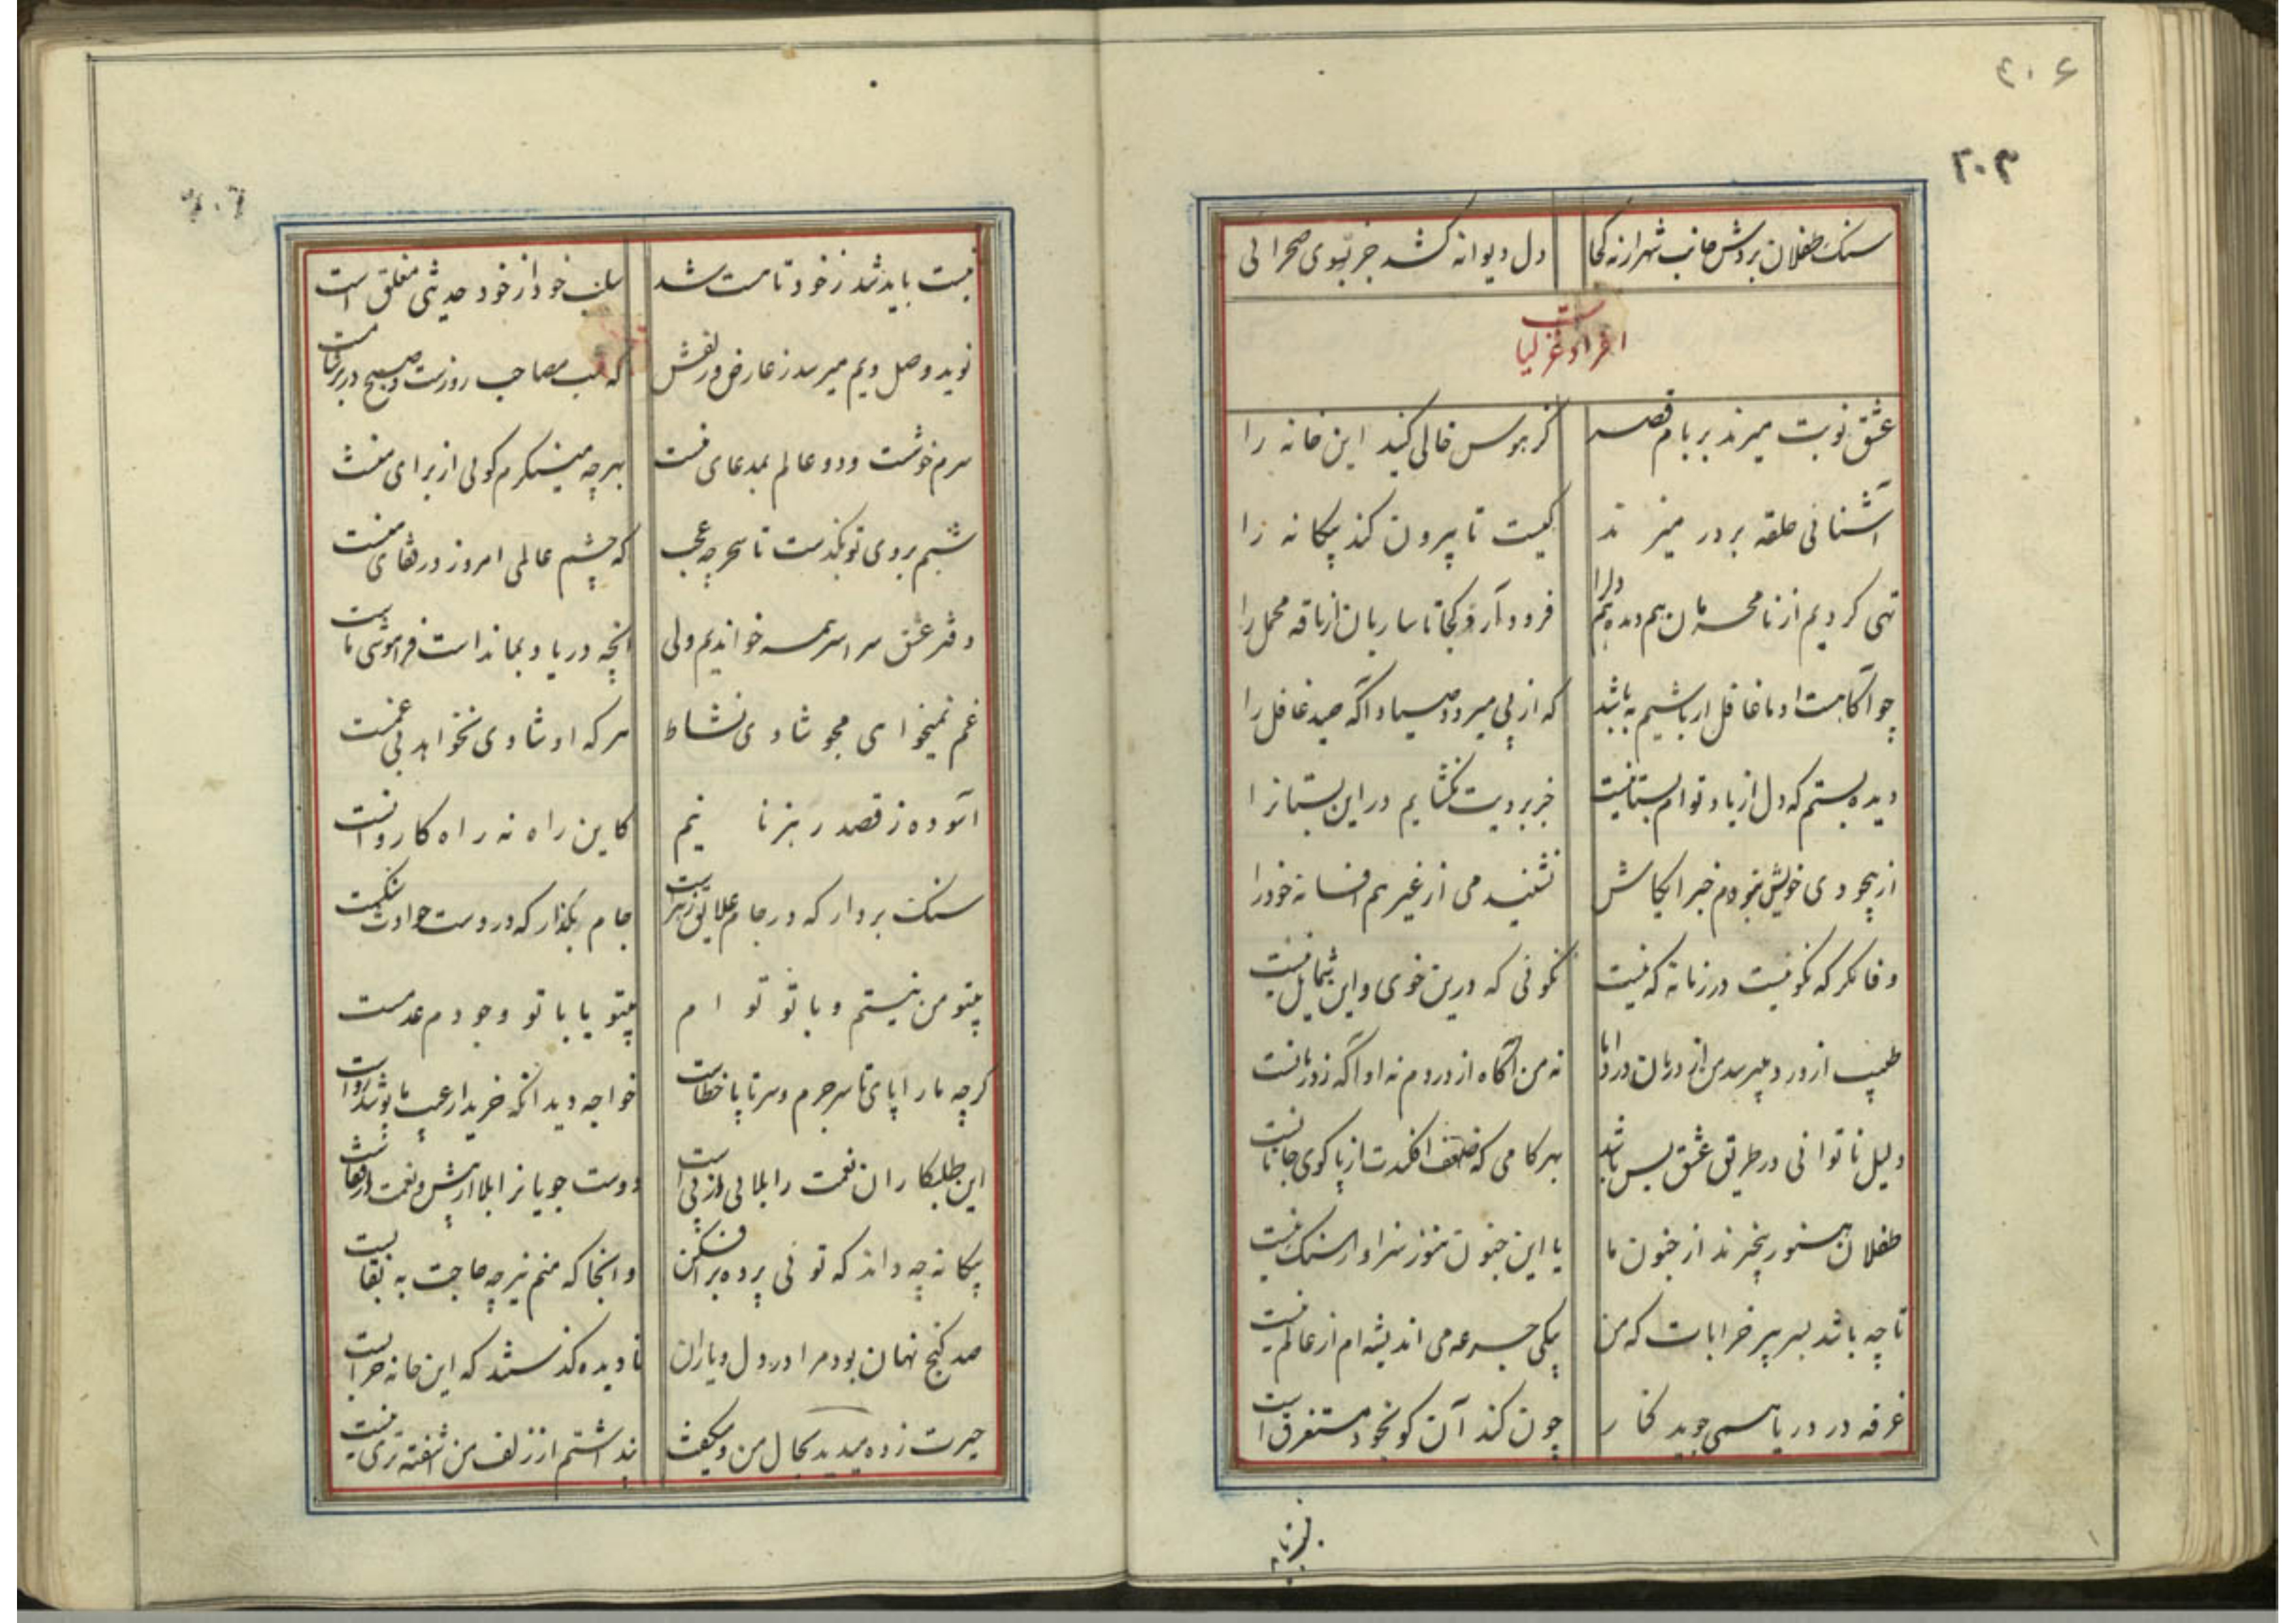 ۲۰۳
سنک طفلان بردش جانب شهر ارنه کجا دل دیوانه کشد جز بسوی صحرائی
افراد غزلیات
عشق نوبت میزند بر بام قصر کز هوس خالی کنید این خانه را
آشنائی حلقه بر در میزند کیست تا بیرون کند بیکانه را
تهی کردیم از نامحرمان هم دیده هم دلرا فرود آرد کجا تا ساربان از ناقه محمل را
چو آکاهست او ما غافل ار باشیم به باشد که از پی میرود صیاد آکه صید غافل را
دیده بستم که دل از یاد توام بستانیست جز برویت نکشایم در این بستانرا
از بیخودی خویش نبودم خبر ایکاش نشنیدمی از غیر هم افسانه خودرا
وفا نکر که نکو نیست در زمانه که نیست نکوئی که درین خوی و این شمایل نیست
طبیب از درد میپرسد من از درمان درد اما نه من آکاه از دردم نه او آکه ز درمانست
دلیل ناتوانی در طریق عشق بس باشد بهر کامی که ضعف افکندت از پا کوی جانانست
طفلان هنوز بیخبرند از جنون ما یا این جنون هنوز سزاوار سنک نیست
تا چه باشد بسر پیر خرابات که من بیکی جرعه می اندیشه ام از عالم نیست
غرقه در دریا همی جوید کنار چون کند آن کو بخود مستغرق است
نیست باید شد ز خود تا مست شد سلب خود از خود حدیثی مغلق است
نوید وصل ویم میرسد ز عارض و زلفش که شب مصاحب روزست و صبح در بر شامست
سرم خوشست و دو عالم بمدعای منست بهرچه مینکرم کوئی از برای منست
شبم بروی تو بکذست تا سحر چه عجب که چشم عالمی امروز در قفای منست
دفتر عشق سراسر همه خواندیم ولی انچه در یاد بماند است فراموشی ماست
غم نمیخواهی مجو شادی نشاط هر که او شادی نخواهد بی غمست
آسوده ز قصد رهزنانیم کاین راه نه راه کاروانست
سنک بردار که در جام علایق زهر است جام بکذار که در دست حوادث سنکست
بیتو من نیستم و با تو توام بیتو یا با تو وجودم عدمست
کرچه ما را پای تا سر جرم و سر تا پا خطاست خواجه دید انکه خریدار عیب ما پوشد رواست
این طلبکاران نعمت را بلائی از پی است دوست جویانرا بلا ار پیش و نعمت در قفاست
بیکانه چه داند که توئی پرده برافکن وانجا که منم نیز چه حاجت به نقابست
صد کنج نهان بود مرا در دل و یاران نادیده کذشتند که این خانه خرابست
حیرت زده میدید بحال من و میکفت پنداشتم از زلف من آشفته تری نیست